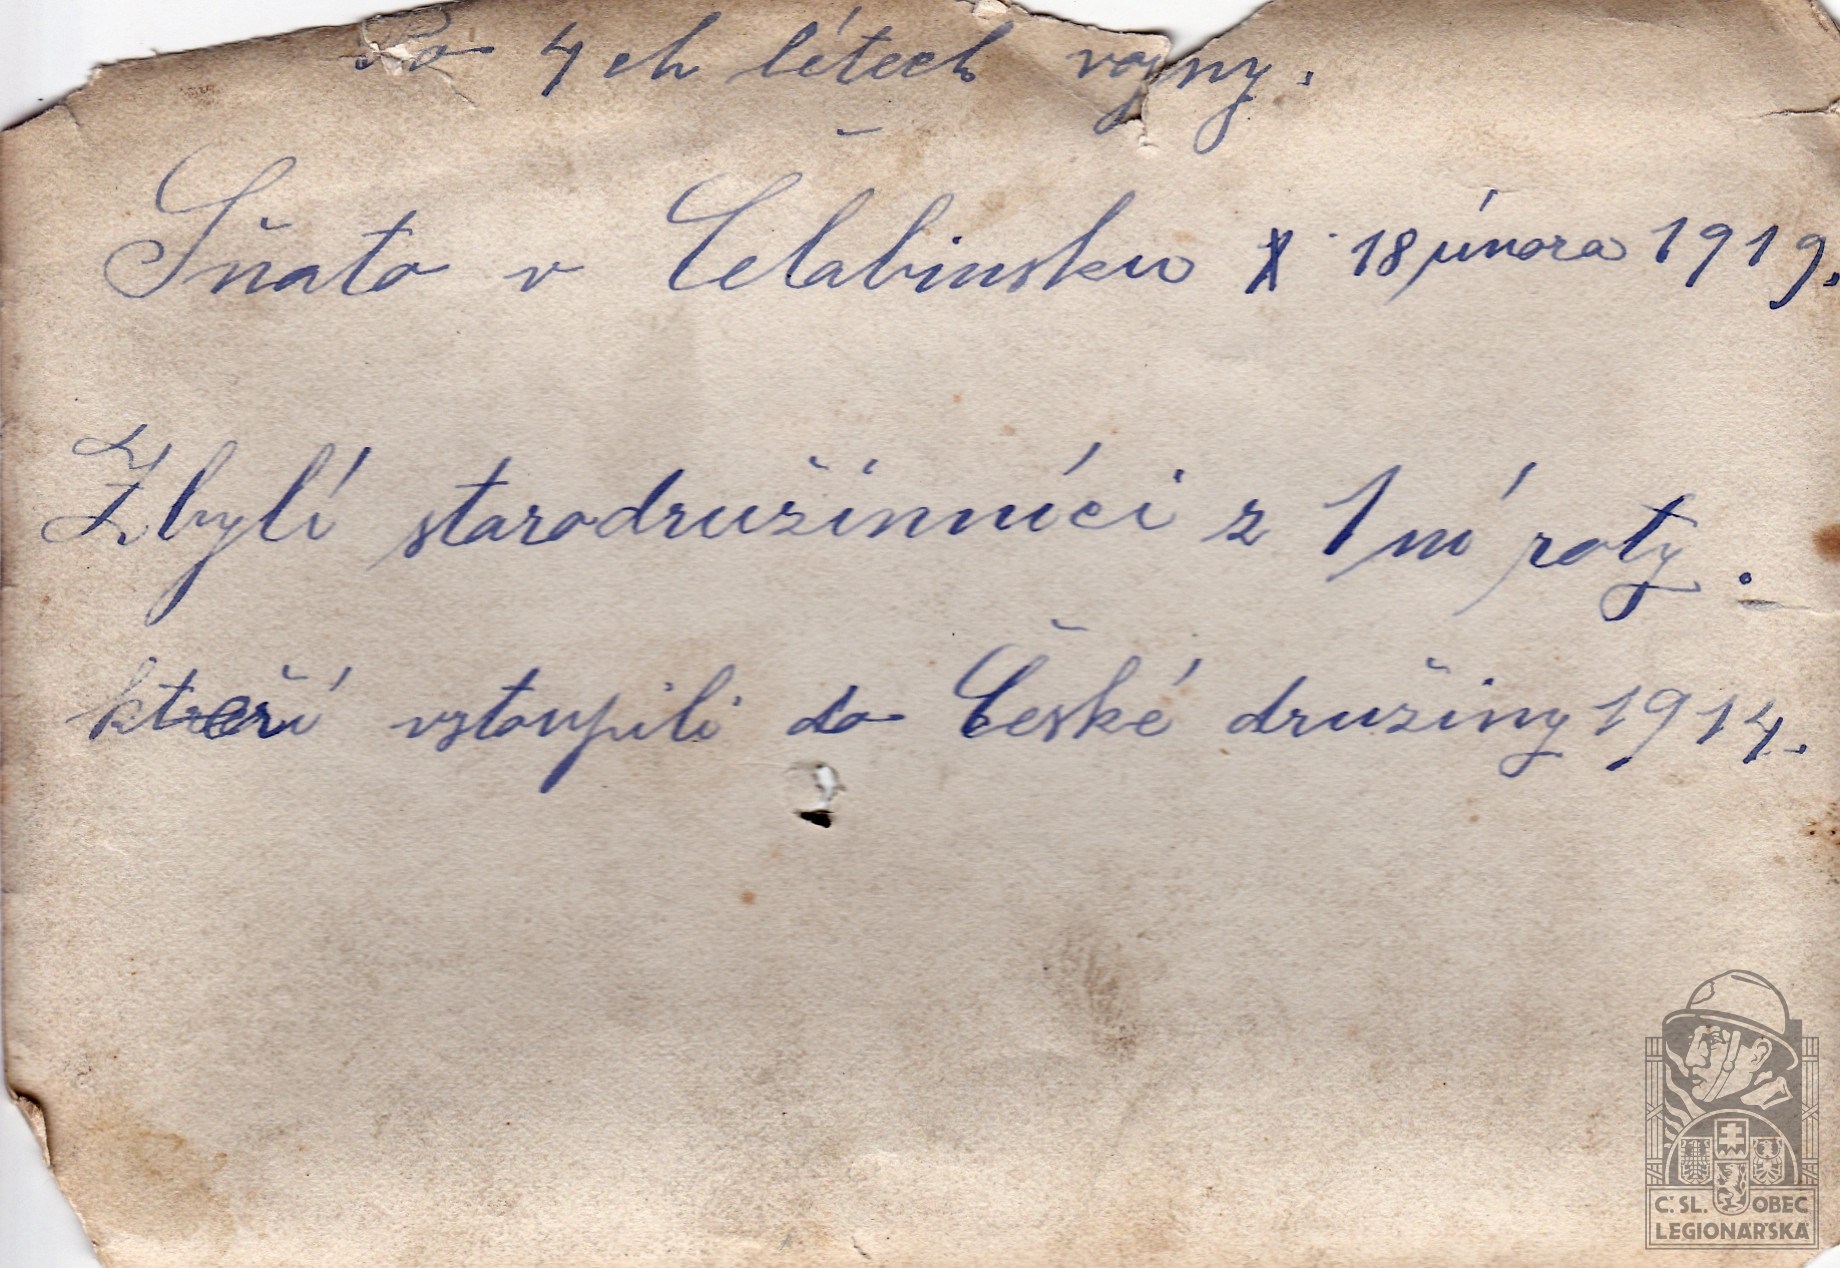 Po 4 ch létech vojny.
Sňato v Čelabinsku 18 února 1919.
Zbylí starodružínníci z 1 ní roty.
kteří vstoupili do České družiny 1914.
Č. SL. OBEC
LEGIONÁŘSKÁ